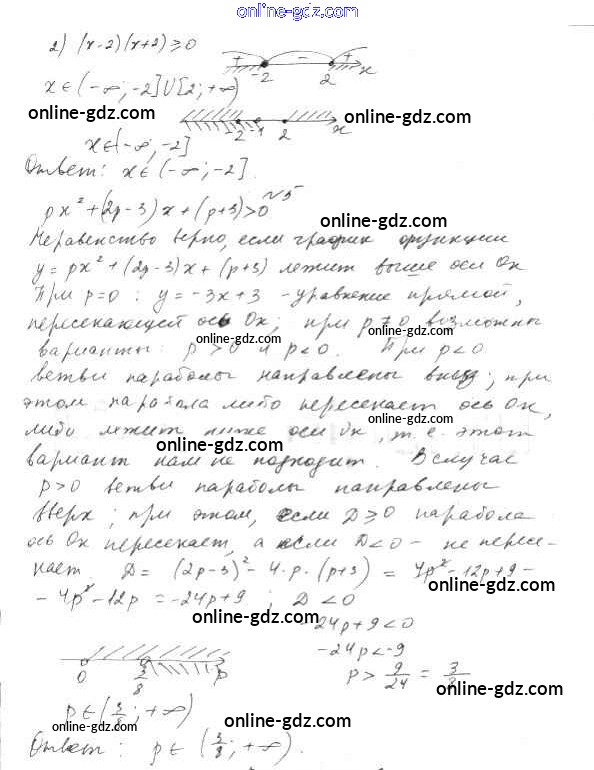 online-gdz.com
2) (x-2)(x+2)≥0
+ - + -2 2 x
x∈(-∞;-2]∪[2;+∞)
online-gdz.com online-gdz.com
-2 -1 2 x
x∈(-∞;-2]
Ответ: x∈(-∞;-2].
online-gdz.com
№5
px²+(2p-3)x+(p+3)>0
online-gdz.com
Неравенство верно, если график функции
y=px²+(2p-3)x+(p+3) лежит выше оси Ox
online-gdz.com
При p=0: y=-3x+3 - уравнение прямой,
пересекающей ось Ox; при p≠0 возможны
online-gdz.com
варианты: p>0 и p<0. При p<0
online-gdz.com
ветви параболы направлены вниз; при
этом парабола либо пересекает ось Ox,
online-gdz.com
либо лежит ниже оси Ox, т.е. этот
online-gdz.com
вариант нам не подходит. В случае
p>0 ветви параболы направлены
вверх; при этом, если D≥0 парабола
online-gdz.com
ось Ox пересекает, а если D<0 - не пересе-
кает. D=(2p-3)²-4·p·(p+3)=4p²-12p+9-
online-gdz.com
-4p²-12p=-24p+9; D<0
online-gdz.com
-24p+9<0
-24p<-9
0 3/8 p
p>9/24=3/8
online-gdz.com
p∈(3/8;+∞)
online-gdz.com online-gdz.com
Ответ: p∈(3/8;+∞).
online-gdz.com